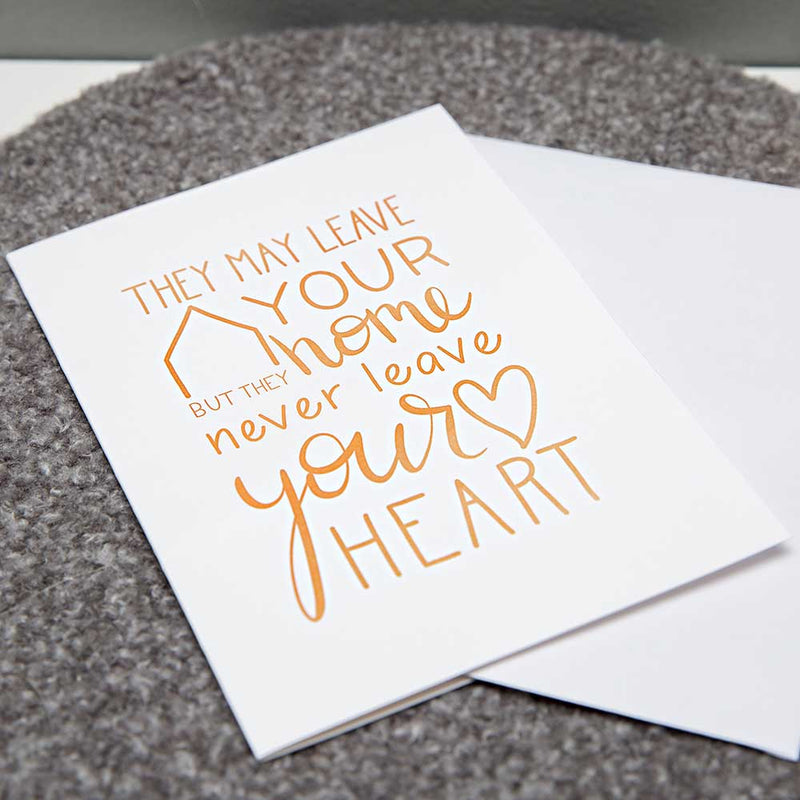 THEY MAY LEAVE
YOUR
home
BUT THEY
never leave
your
HEART